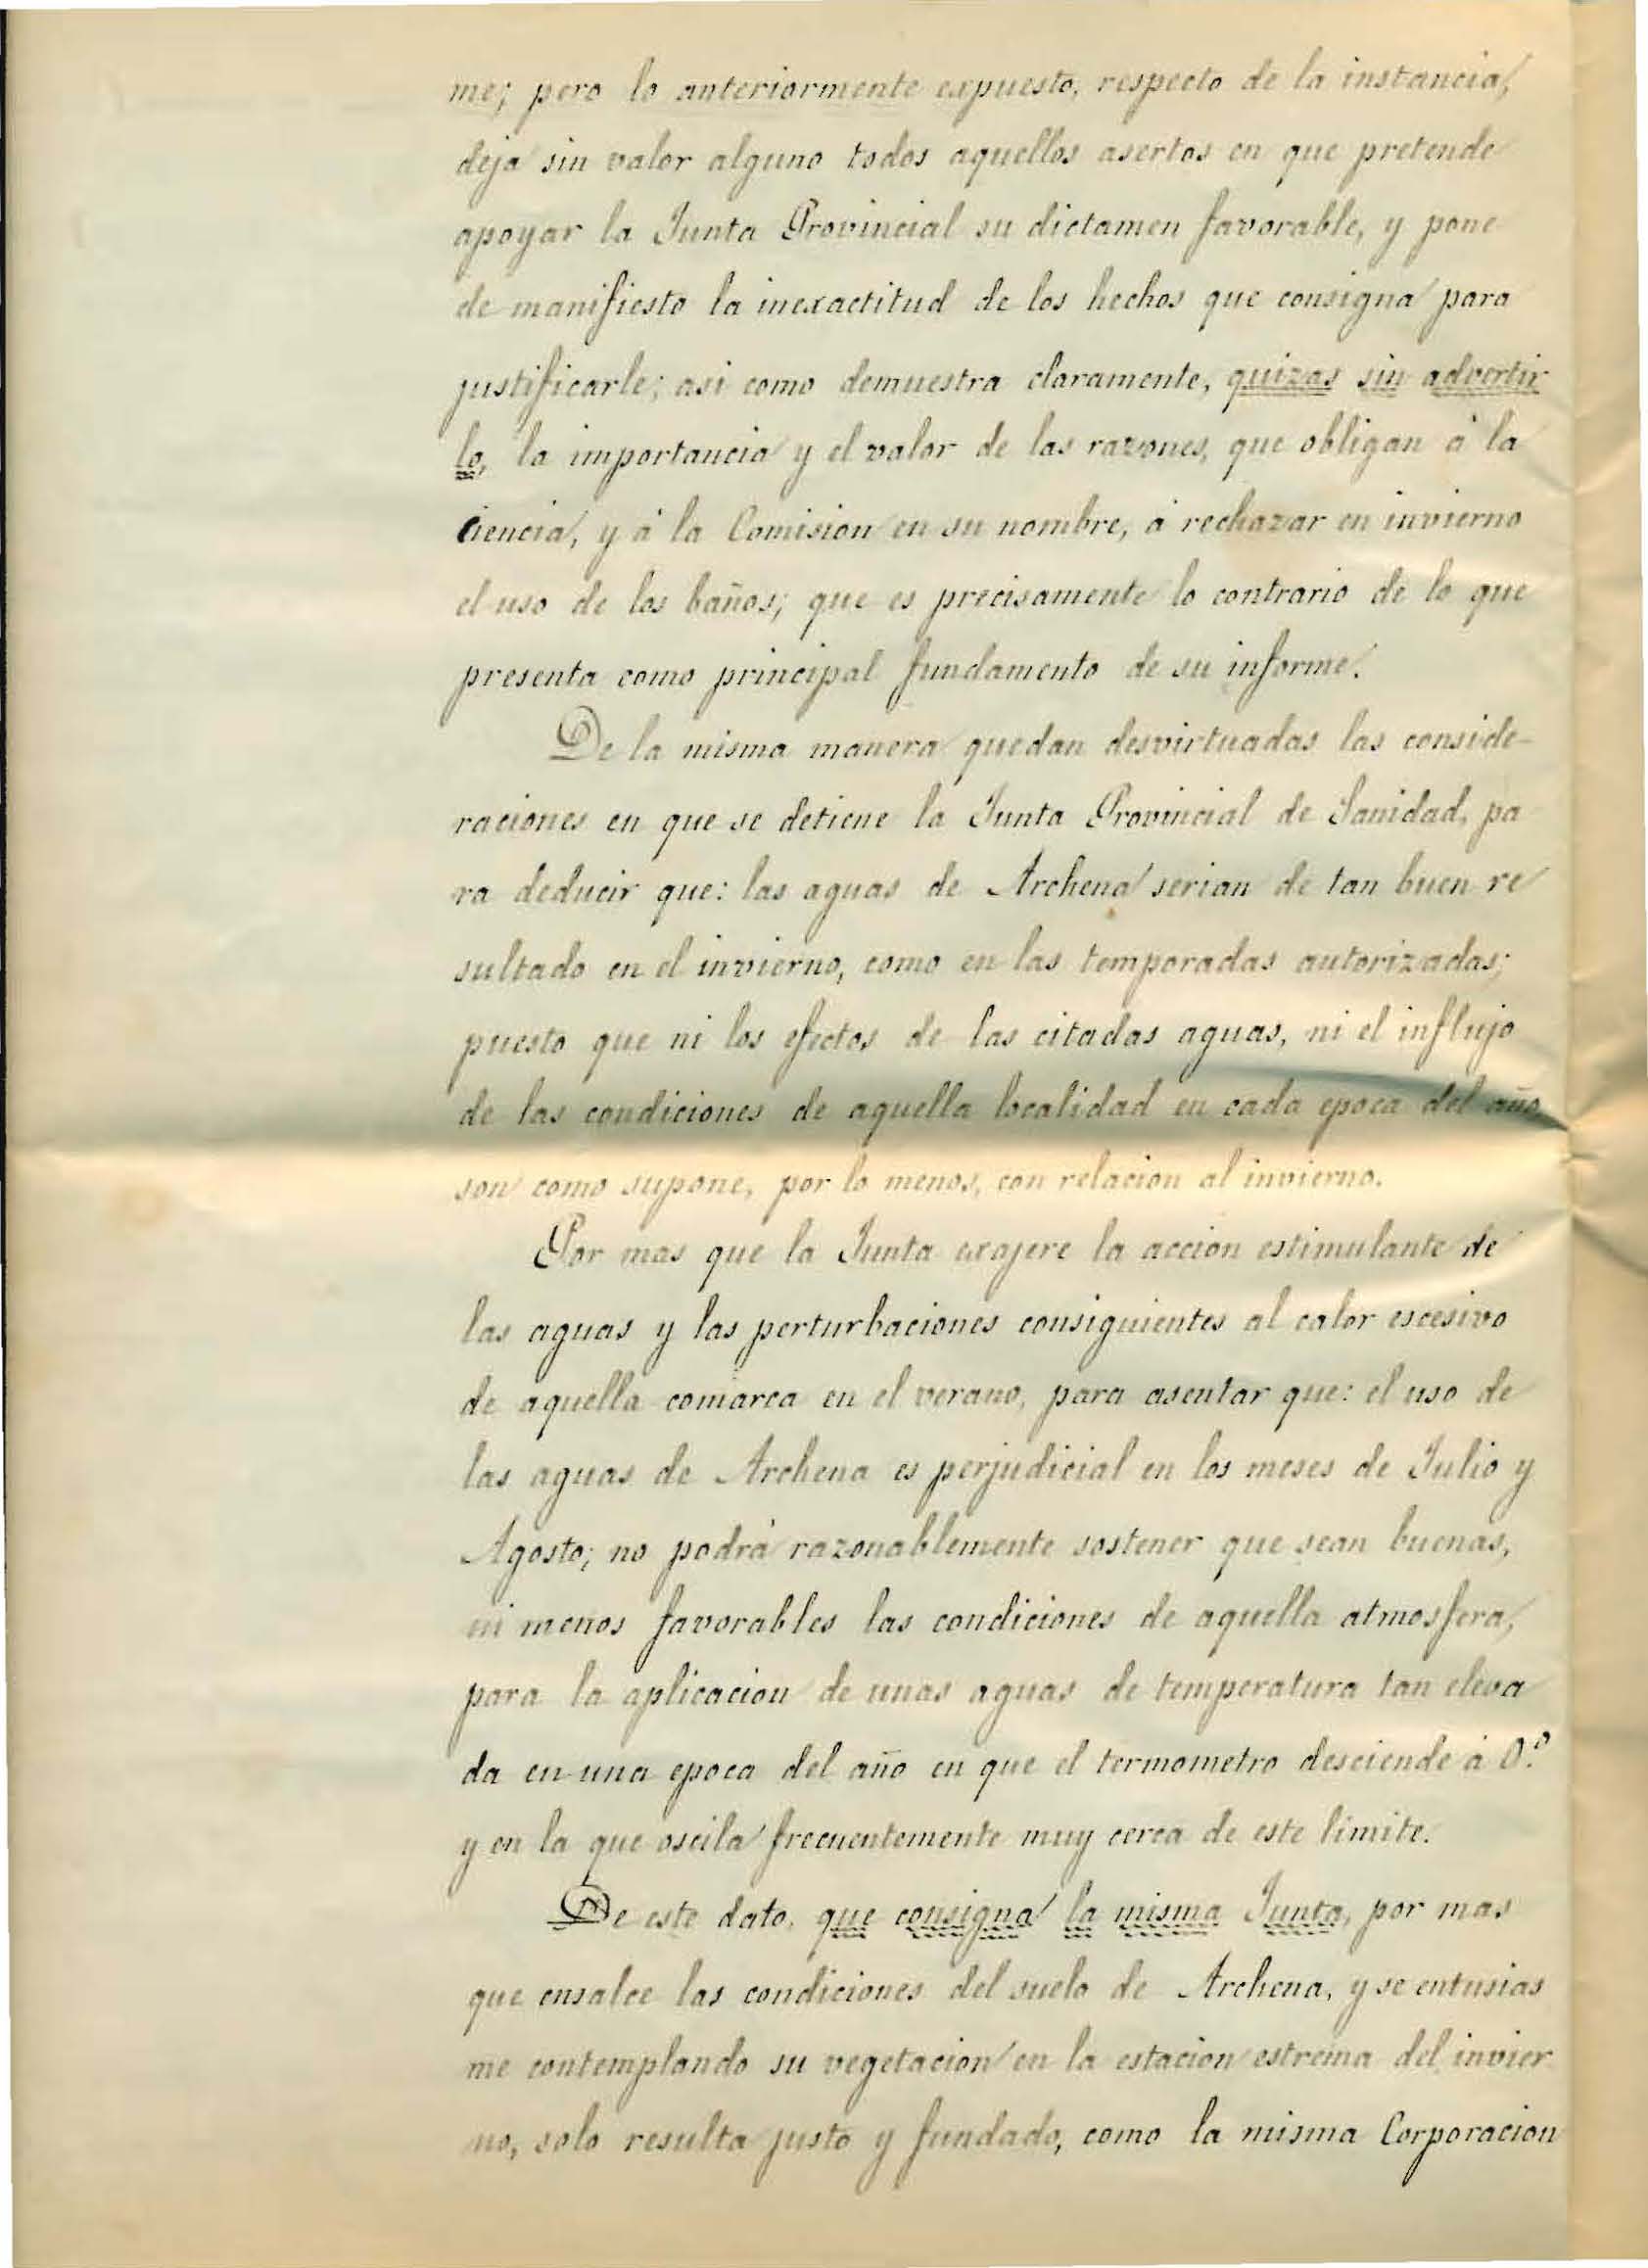 me; pero lo anteriormente expuesto, respecto de la instancia,
deja sin valor alguno todos aquellos asertos en que pretende
apoyar la Junta Provincial su dictamen favorable, y pone
de manifiesto la inexactitud de los hechos que consigna para
justificarle; asi como demuestra claramente, quizas sin advertir
lo, la importancia y el valor de las razones, que obligan á la
ciencia, y á la Comision en su nombre, á rechazar en invierno
el uso de los baños; que es precisamente lo contrario de lo que
presenta como principal fundamento de su informe.
De la misma manera quedan desvirtuadas las conside-
raciones en que se detiene la Junta Provincial de Sanidad, pa
ra deducir que: las aguas de Archena serian de tan buen re
sultado en el invierno, como en las temporadas autorizadas;
puesto que ni los efectos de las citadas aguas, ni el influjo
de las condiciones de aquella localidad en cada epoca del año
son como supone, por lo menos, con relacion al invierno.
Por mas que la Junta exajere la accion estimulante de
las aguas y las perturbaciones consiguientes al calor escesivo
de aquella comarca en el verano, para asentar que: el uso de
las aguas de Archena es perjudicial en los meses de Julio y
Agosto; no podrá razonablemente sostener que sean buenas,
ni menos favorables las condiciones de aquella atmosfera,
para la aplicacion de unas aguas de temperatura tan eleva
da en una epoca del año en que el termometro desciende á 0.º
y en la que oscila frecuentemente muy cerca de este limite.
De este dato, que consigna la misma Junta, por mas
que ensalce las condiciones del suelo de Archena, y se entusias
me contemplando su vegetacion en la estacion estrema del invier
no, solo resulta justo y fundado, como la misma Corporacion